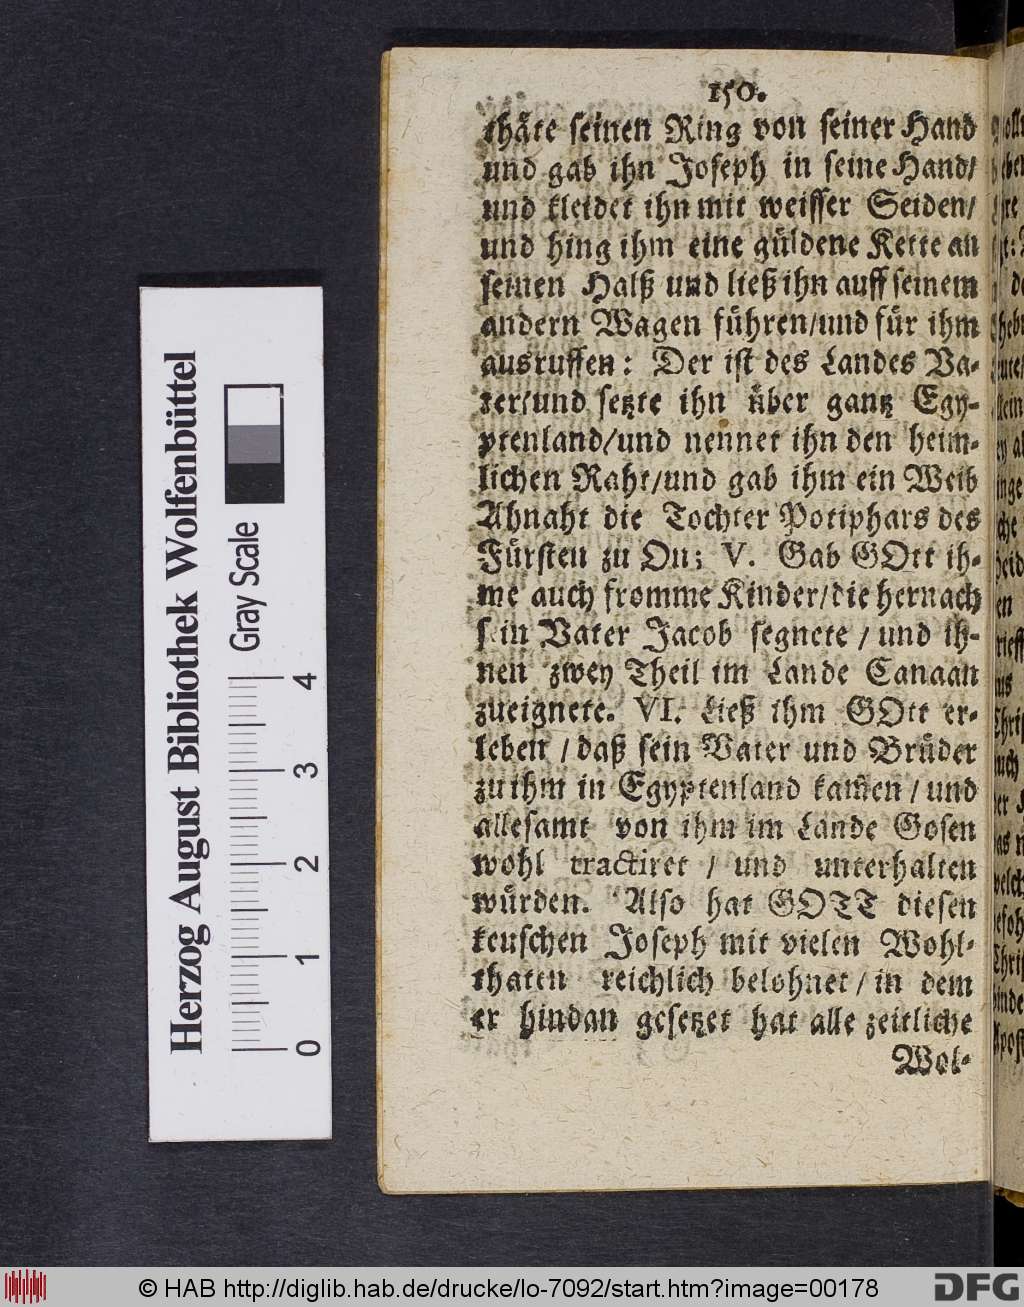 150.
thäte seinen Ring von seiner Hand
und gab ihn Joseph in seine Hand/
und kleidet ihn mit weisser Seiden/
und hing ihm eine güldene Kette an
seinen Halß und ließ ihn auff seinem
andern Wagen führen/und für ihm
ausruffen: Der ist des Landes Va-
ter/und setzte ihn über gantz Egy-
ptenland/und nennet ihn den heim-
lichen Raht/und gab ihm ein Weib
Aßnaht die Tochter Potiphars des
Fürsten zu On; V. Gab GOtt ih-
me auch fromme Kinder/die hernach
sein Vater Jacob segnete / und ih-
nen zwey Theil im Lande Canaan
zueignete. VI. Ließ ihm GOtt er-
leben / daß sein Vater und Brüder
zu ihm in Egyptenland kam̃en / und
allesamt von ihm im Lande Gosen
wohl tractiret / und unterhalten
würden. Also hat GOTT diesen
keuschen Joseph mit vielen Wohl-
thaten reichlich belohnet / in dem
er hindan gesetzet hat alle zeitliche
Wol-
Herzog August Bibliothek Wolfenbüttel
Gray Scale
0 1 2 3 4
© HAB http://diglib.hab.de/drucke/lo-7092/start.htm?image=00178
DFG